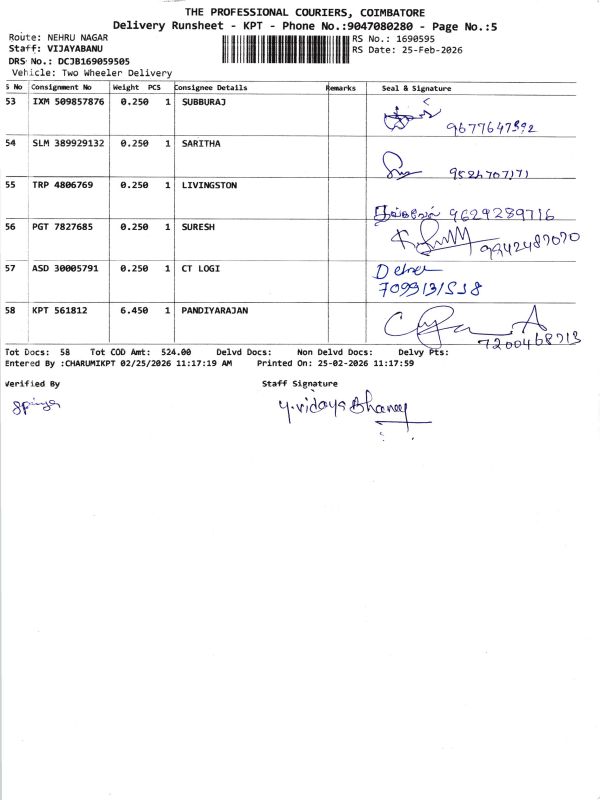 THE PROFESSIONAL COURIERS, COIMBATORE
Delivery Runsheet - KPT - Phone No.:9047080280 - Page No.:5
Route: NEHRU NAGAR
RS No.: 1690595
Staff: VIJAYABANU
RS Date: 25-Feb-2026
DRS No.: DCJB169059505
Vehicle: Two Wheeler Delivery
S No Consignment No Weight PCS Consignee Details Remarks Seal & Signature
53 IXM 509857876 0.250 1 SUBBURAJ
9677647392
54 SLM 389929132 0.250 1 SARITHA
55 TRP 4806769 0.250 1 LIVINGSTON
9629289716
56 PGT 7827685 0.250 1 SURESH
9942487070
57 ASD 30005791 0.250 1 CT LOGI
58 KPT 561812 6.450 1 PANDIYARAJAN
7200468713
Tot Docs: 58 Tot COD Amt: 524.00 Delvd Docs: Non Delvd Docs: Delvy Pts:
Entered By :CHARUMIKPT 02/25/2026 11:17:19 AM Printed On: 25-02-2026 11:17:59
Verified By Staff Signature
Y.vidaya Bhanu